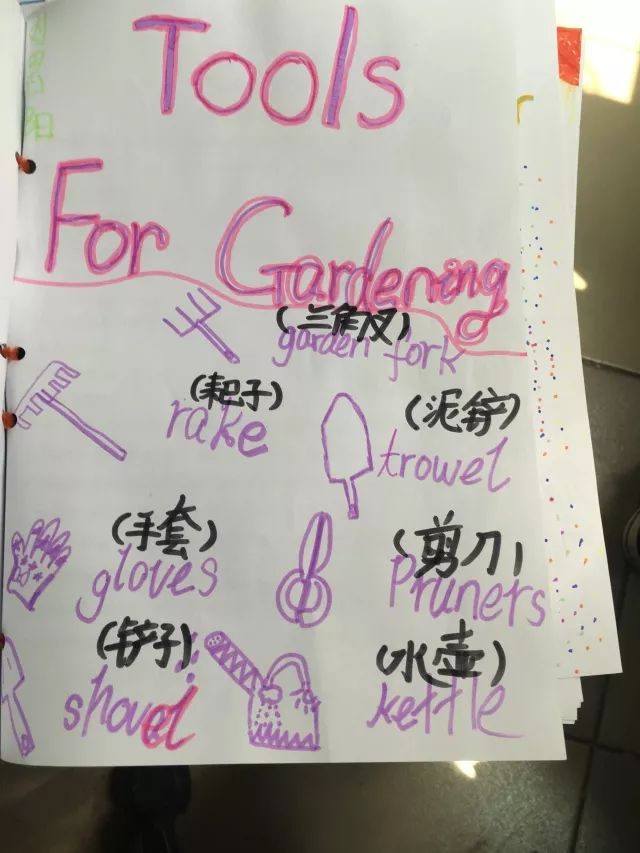 Tools
For Gardening
(三角叉)
garden fork
(耙子)
rake
(泥铲)
trowel
(手套)
gloves
(剪刀)
pruners
(铲子)
shovel
(水壶)
kettle